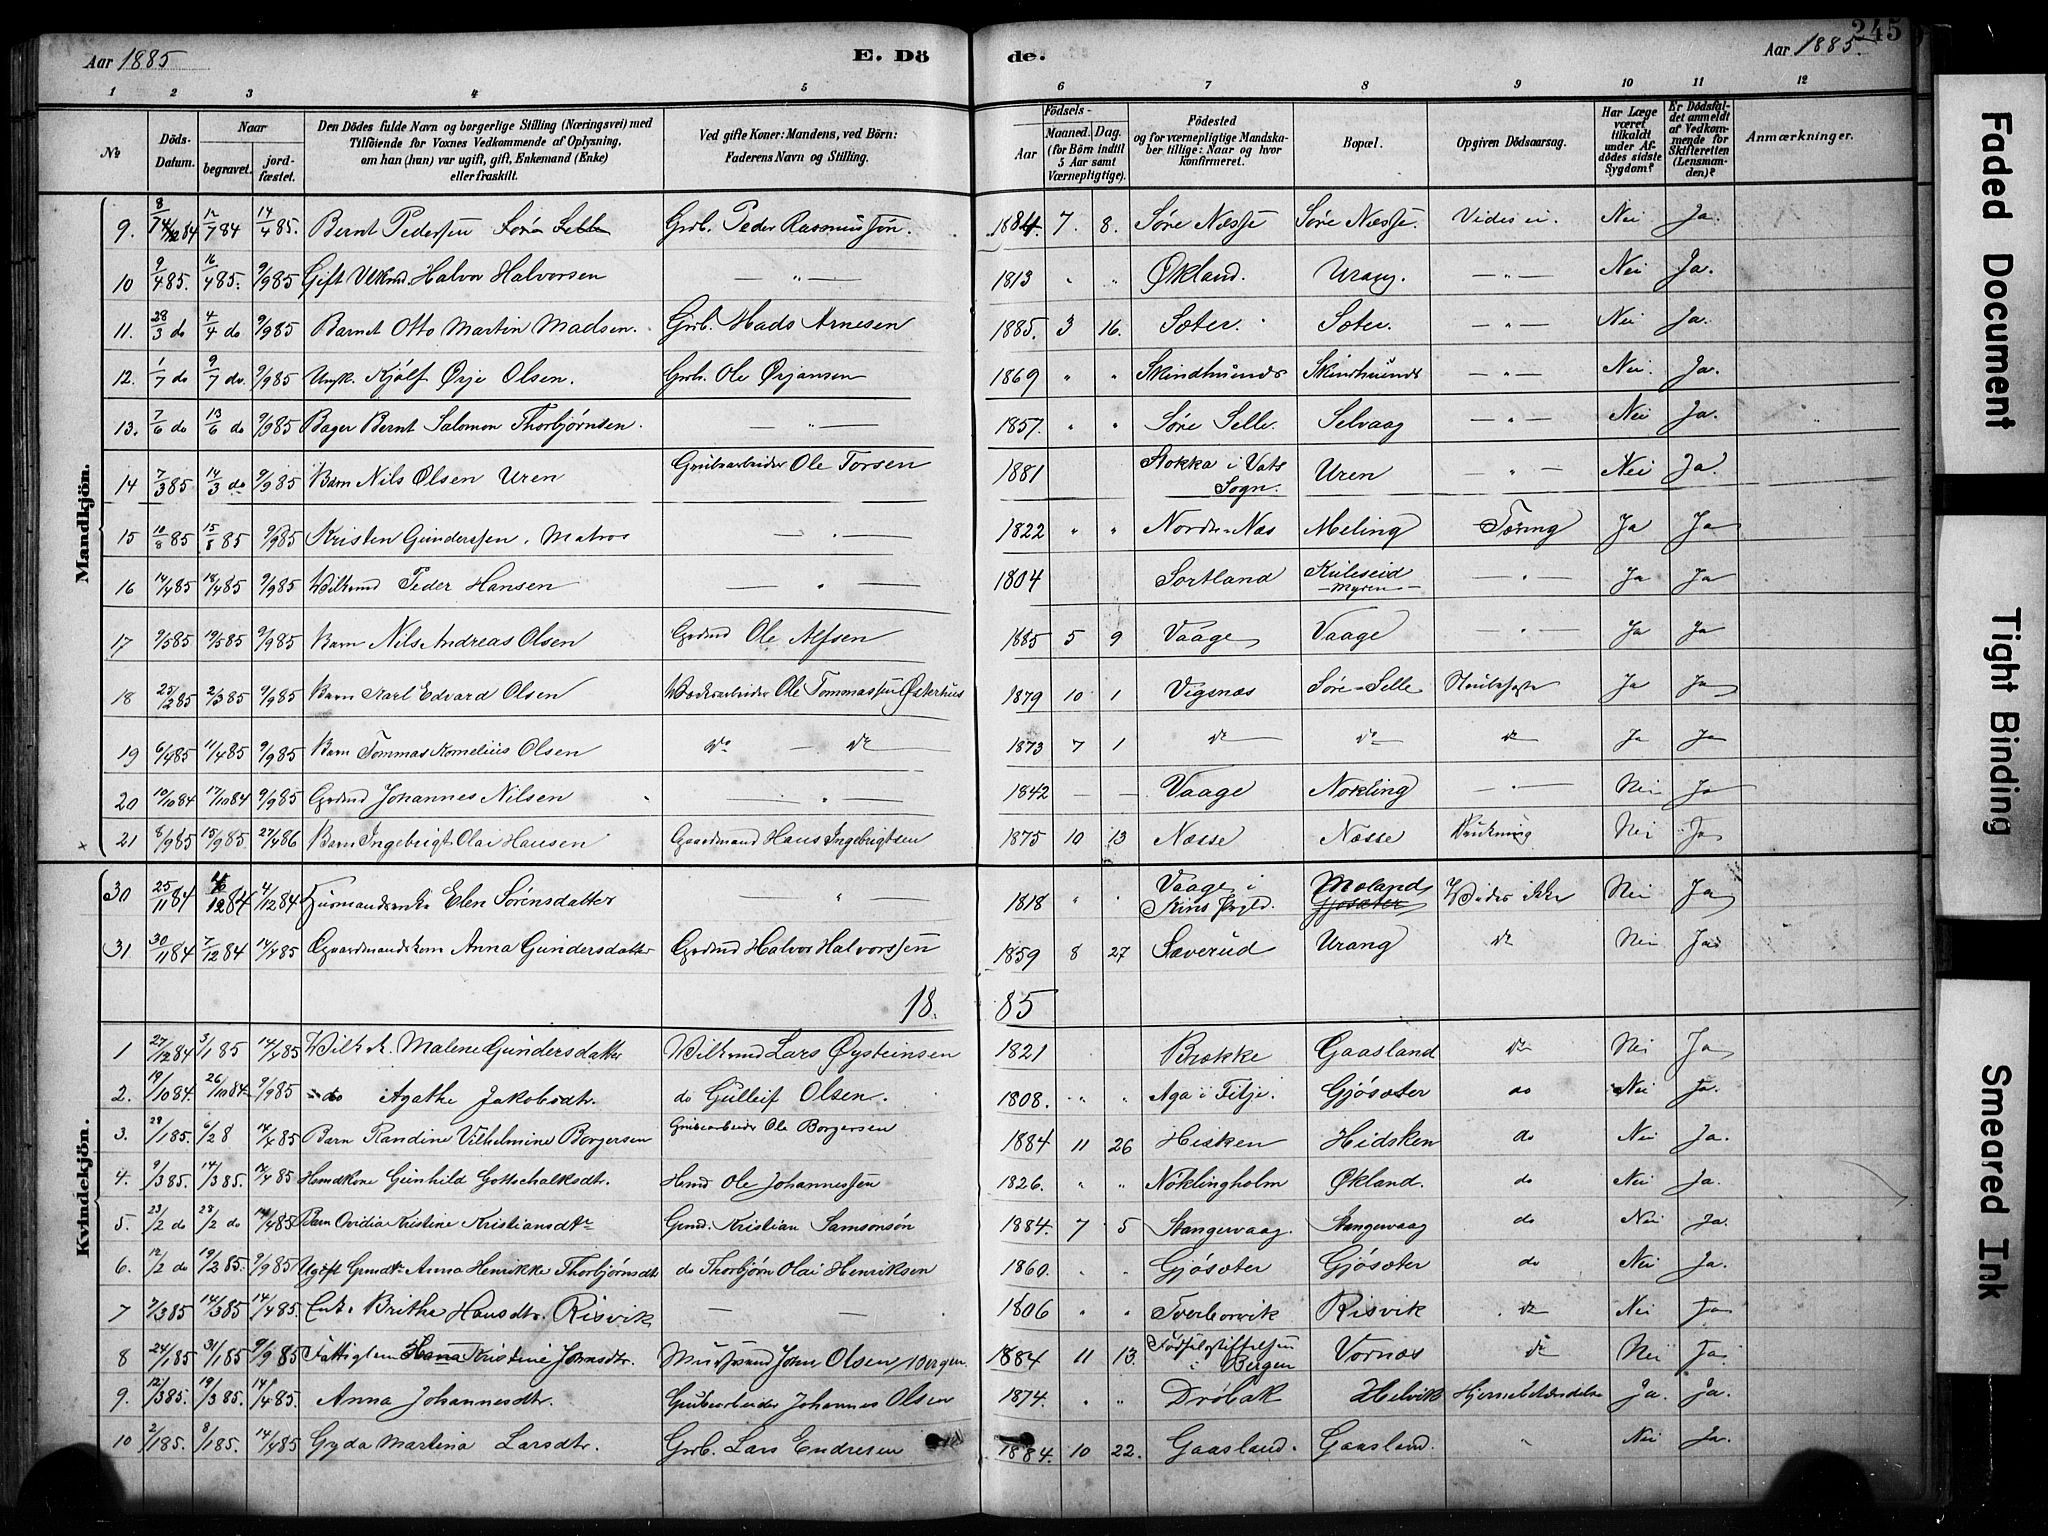 245
Aar 1885 E. Dö de. Aar 1885.
1 2 3 4 5 6 7 8 9 10 11 12
No Döds-Datum. Naar begravet. jordfæstet. Den Dödes fulde Navn og borgerlige Stilling (Næringsvei) med Tilföiende for Voxnes Vedkommende af Oplysning, om han (hun) var ugift, gift, Enkemand (Enke) eller fraskilt. Ved gifte Koner: Mandens, ved Börn: Faderens Navn og Stilling. Födsels- Aar Maaned. Dag. (for Börn indtil 5 Aar samt Værnepligtige). Födested og for værnepligtige Mandskaber tillige: Naar og hvor konfirmeret. Bopæl. Opgiven Dödsaarsag. Har Læge været tilkaldt under Afdödes sidste Sygdom? Er Dödsfaldet anmeldt af Vedkommende for Skifteretten (Lensmanden)? Anmærkninger.
Mandkjön.
9. 12/7 84 14/4 85. Bernt Pedersen Grb. Peder Rasmussøn. 1884. 7. 8. Søre Næsse Søre Næsse. Vides ei. Nei Ja.
10 9/4 85. 16/4 85. 9/9 85 Gift Halvor Halvorsen — „ — 1813 „ „ Økland. Urang. — „ — Nei Ja.
11. 28/3 do 4/4 do 9/9 85 Barnet Otto Martin Madsen. Grb. Mads Arnesen 1885. 3 16. Sæter. Sæter. — „ — Nei Ja.
12. 1/7 do 9/7 do. 9/9 85 Ungk. Kjølf Ørje Olsen. Grb. Ole Ørjansen 1869 „ „ — „ — Nei Ja.
13. 7/6 do 13/6 do 9/9 85 Bager Bernt Salomon Thorbjørnsen. — „ — 1857. „ „ Søre Selle. Selvaag — „ — Nei Ja.
14 7/3 85 14/3 do 9/9 85 Barn Nils Olsen Uren Grubearbeider Ole Torsen 1881 Stokka i Vats Sogn. Uren — „ — Nei Ja.
15 10/8 85 15/8 85 9/9 85 Kristen Gunderssen, Matros — „ — 1822 „ „ Nordre-Næs Meling Tæring Ja Ja
16 14/4 85 18/4 85 9/9 85 Peder Hansen — „ — 1804 Sortland Kuleseid -Myren- — „ — Ja Ja
17 9/5 85 19/5 85 9/9 85 Barn Nils Andreas Olsen Grdmd Ole Alfsen 1885 5 9 Vaage Vaage — „ — Ja Ja
18 25/2 85 2/3 85 9/9 85 Barn Karl Edvard Olsen Ole Tommassen Østerhus 1879 10 1 Vigsnæs Søre-Selle Ja Ja
19 6/4 85 11/4 85 9/9 85 Barn Tommas Kornelius Olsen do — do 1873 7 1 do do do Ja Ja
20 10/10 84 17/10 84 9/9 85 Grdmd Johannes Nilsen — „ — 1842 — — Vaage Nøkling — „ — Nei Ja
x 21 8/9 85 15/9 85 27/4 86 Barn Ingebrigt Olai Hansen Gaardmand Hans Ingebrigtsen 1875 10 13 Næsse Næsse Drukning Nei Ja
Kvindekjön.
30 25/11 84 4/12 84 Elen Sørensdatter „ 1818 „ „ Vaage i Moland Gjøsæter Vides ikke Nei Ja
31 30/11 84 7/12 84 14/4 85 Gaardmandskone Anna Gundersdatter Grdmd Halvor Halvorssen 1859 8 27 Sæverud Urang do Nei Ja
18. 85
1 27/12 84 3/1 85 14/4 85 Malene Gundersdatter Lars Øysteinsen 1821 Brekke Gaasland do Nei Ja
2. 19/10 84 26/10 84. 9/9 85 do Agathe Jakobsdtr. do Gulleif Olsen. 1808. „ „ Aga i Fitje. Gjøsæter do Nei Ja.
3. 28/1 85. 6/2 8 14/4 85 Barn Randine Vilhelmine Borgersen Grubearbeider Ole Borgersen 1884 11 26 Hisken Hidsken do Nei Ja.
4. 9/3 85. 14/3 85. 14/4 85 Husmdkone Gunhild Gottschalksdtr. Husmd Ole Johannessen 1826. „ „ Nöklingholm Økland. do Nei Ja.
5. 23/2 do 28/2 do 14/4 85 Barn Ovidia Kristine Kristiansdtr Grmd. Kristian Samsonsøn 1884. 7 5 Stangervaag. Stangervaag do Nei Ja.
6. 12/2 do 19/2 85. 9/9 85 Ugift Anna Henrikke Thorbjørnsdtr do Thorbjørn Olai Henriksen 1860. „ „ Gjøsæter Gjøsæter do Nei Ja.
7 7/3 85 14/3 85 14/4 85. Enke Brithe Hansdtr. Risvik — — 1806 „ „ Tverborvik Risvik do Nei Ja
8 24/1 85 31/1 85 9/9 85 Fattiglem Kristine Johnsdtr. John Olsen, Bergen 1884 11 13. Fødselsstiftelsen i Bergen Vornæs do Nei Ja
9. 12/3 85. 19/3 85. 14/4 85. Anna Johannesdtr. Grubearbeider Johannes Olsen 1874. „ „ Drøbak Helvik Hjernebetændelse Ja. Ja.
10 2/1 85. 8/1 85. 14/4 85 Gyda Martina Larsdtr. Grb. Lars Endresen 1884. 10 22. Gaasland. Gaasland. „ Nei Ja.
Faded Document
Tight Binding
Smeared Ink